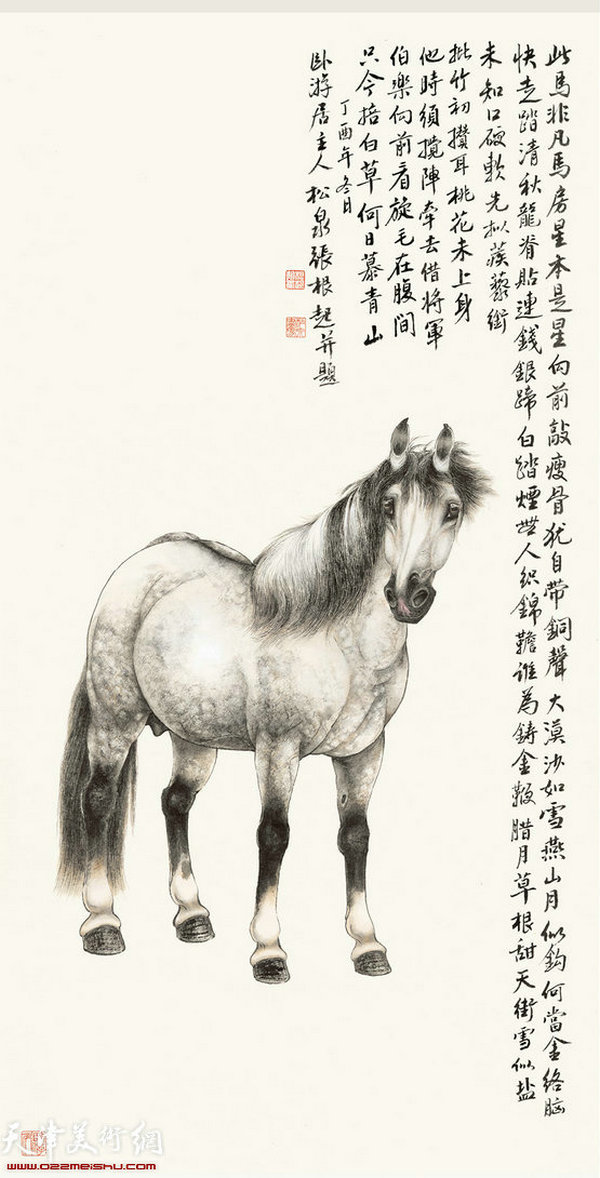 此馬非凡馬房星本是星向前敲瘦骨犹自带銅聲大漠沙如雪燕山月似鈎何當金络脑
快走踏清秋龍脊貼連錢銀蹄白踏煙世人织錦韂谁為鋳金鞭腊月草根甜天街雪似盐
未知口硬軟先拟蒺藜銜
批竹初攢耳桃花未上身
他時須攪陣牽去借将軍
伯樂向前看旋毛在腹間
只今掊白草何日蓦青山
丁酉年冬日
卧游居主人松泉張根起并題
天津美術網
www.022meishu.com